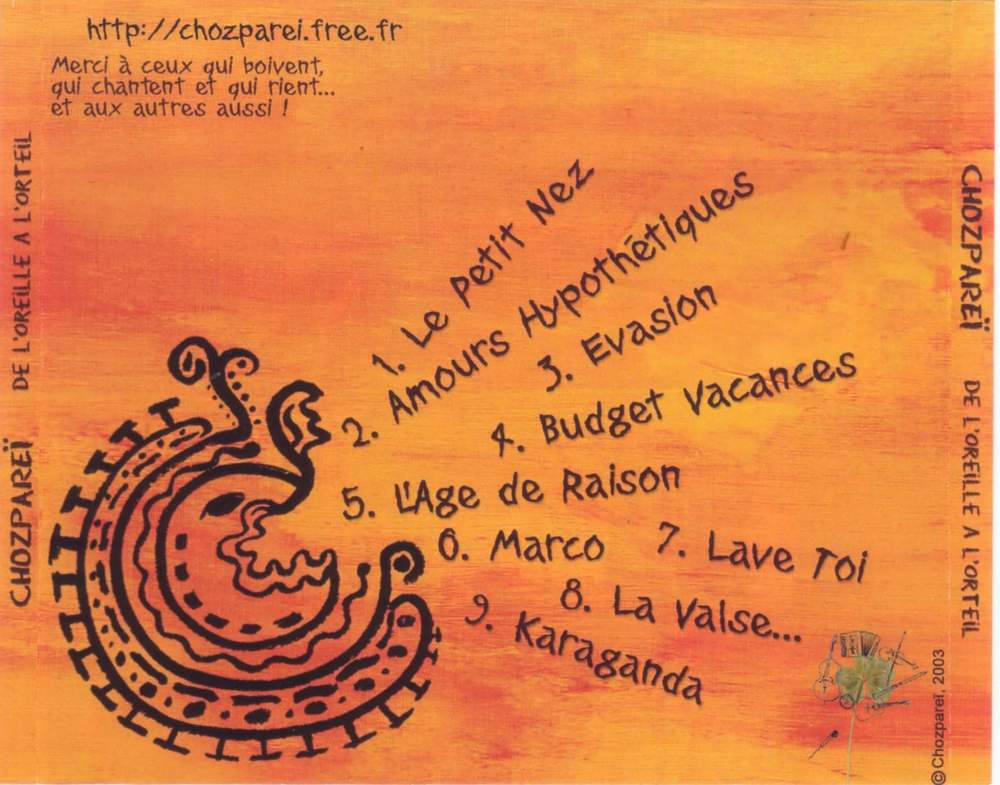 http://chozparei.free.fr
Merci à ceux qui boivent,
qui chantent et qui rient...
et aux autres aussi !
1. Le Petit Nez
2. Amours Hypothétiques
3. Evasion
4. Budget Vacances
5. L'Age de Raison
6. Marco
7. Lave Toi
8. La Valse...
9. Karaganda
CHOZPAREÏ DE L'OREILLE A L'ORTEIL
CHOZPAREÏ DE L'OREILLE A L'ORTEIL
©Chozpareï, 2003